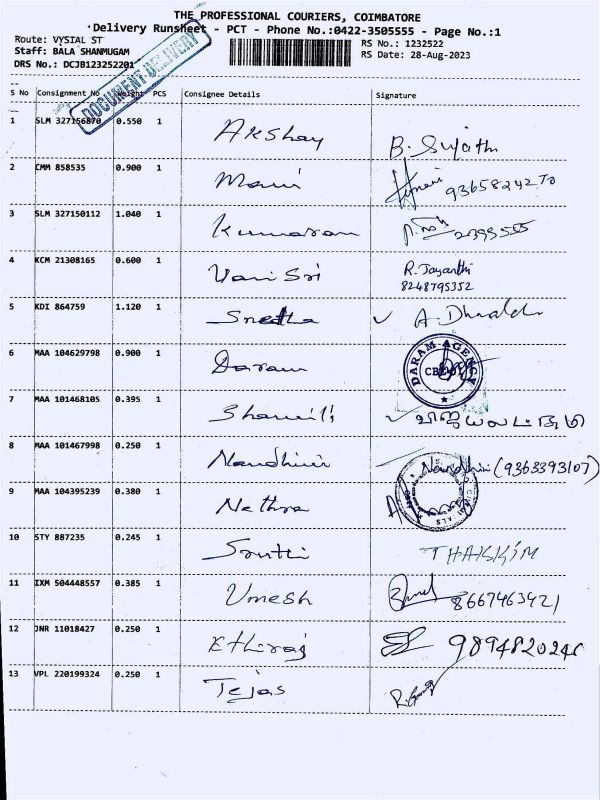 THE PROFESSIONAL COURIERS, COIMBATORE
Delivery Runsheet - PCT - Phone No.:0422-3505555 - Page No.:1
Route: VYSIAL ST
Staff: BALA SHANMUGAM
DRS No.: DCJB123252201
RS No.: 1232522
RS Date: 28-Aug-2023
DOCUMENT DELIVERY
S No Consignment No Weight PCS Consignee Details Signature
1 SLM 327156870 0.550 1 Akshay B. Sujathi
2 CMM 858535 0.900 1 Mani 9365824270
3 SLM 327150112 1.040 1 Kumaran
4 KCM 21308165 0.600 1 Vani Sri R. Jayanthi
8248795352
5 KDI 864759 1.120 1 Snetha
6 MAA 104629798 0.900 1 Daram DARAM AGENCY
7 MAA 101468105 0.395 1
8 MAA 101467998 0.250 1 Nandhini Nandhini (9363393107)
9 MAA 104395239 0.380 1 Nethra
10 STY 887235 0.245 1 Sruthi THAKKIM
11 IXM 504448557 0.385 1 Umesh 8667463421
12 JNR 11018427 0.250 1 Ethiraj
13 VPL 220199324 0.250 1 Tejas